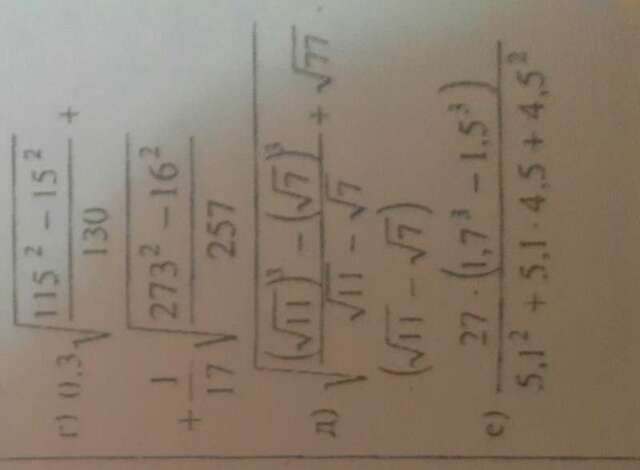 г) 0,3√((115² − 15²)/130) +
+ 1/17 √((273² − 16²)/257)
д) √(((√11)³ − (√7)³)/(√11 − √7) + √77)
(√11 − √7)
е) (27 · (1,7³ − 1,5³))/(5,1² + 5,1 · 4,5 + 4,5²)